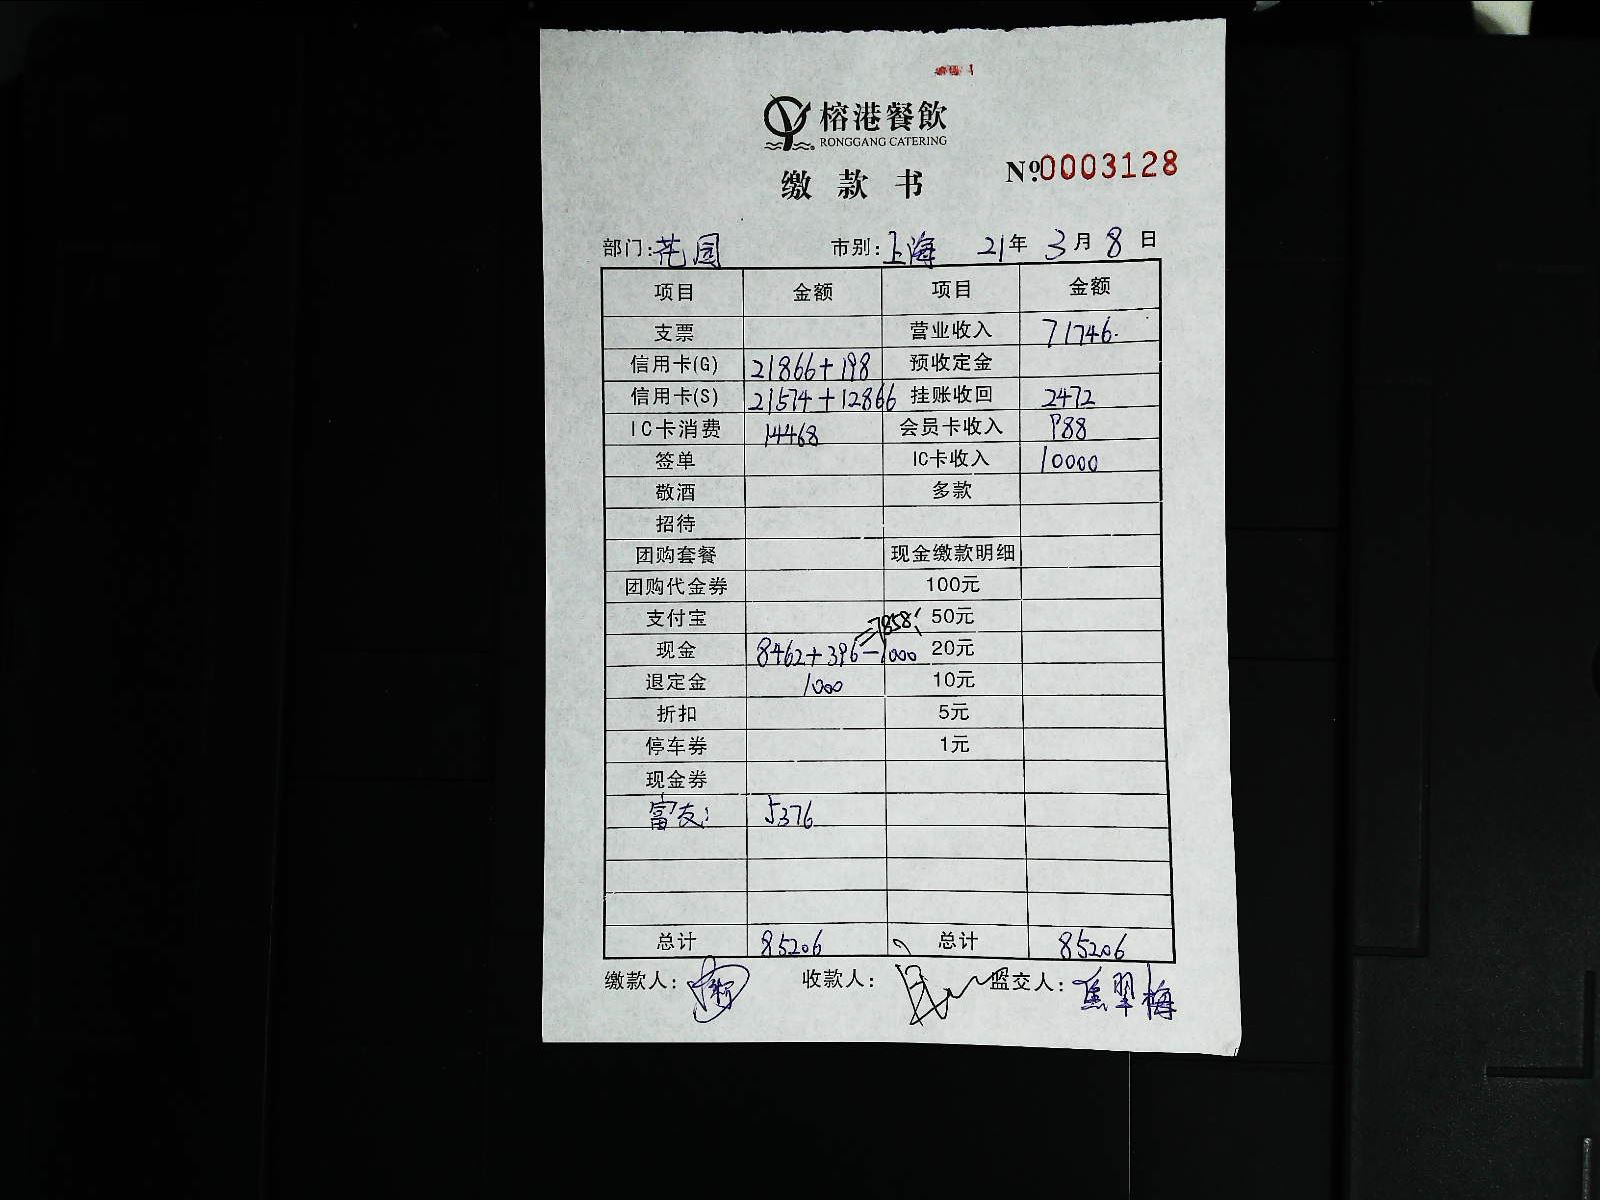 榕港餐飲
RONGGANG CATERING
缴款书 Nº:0003128
部门:花园 市别:上海 21年 3月 8日
项目 金额 项目 金额
支票 营业收入 71746.
信用卡(G) 21866+198 预收定金
信用卡(S) 21574+12866 挂账收回 2472
IC卡消费 14468 会员卡收入 988
签单 IC卡收入 10000
敬酒 多款
招待
团购套餐 现金缴款明细
团购代金券 100元
支付宝 50元
现金 8462+396-1000=7858 20元
退定金 1000 10元
折扣 5元
停车券 1元
现金券
富友: 5376
总计 85206 总计 85206
缴款人: 收款人: 监交人:焦翠梅